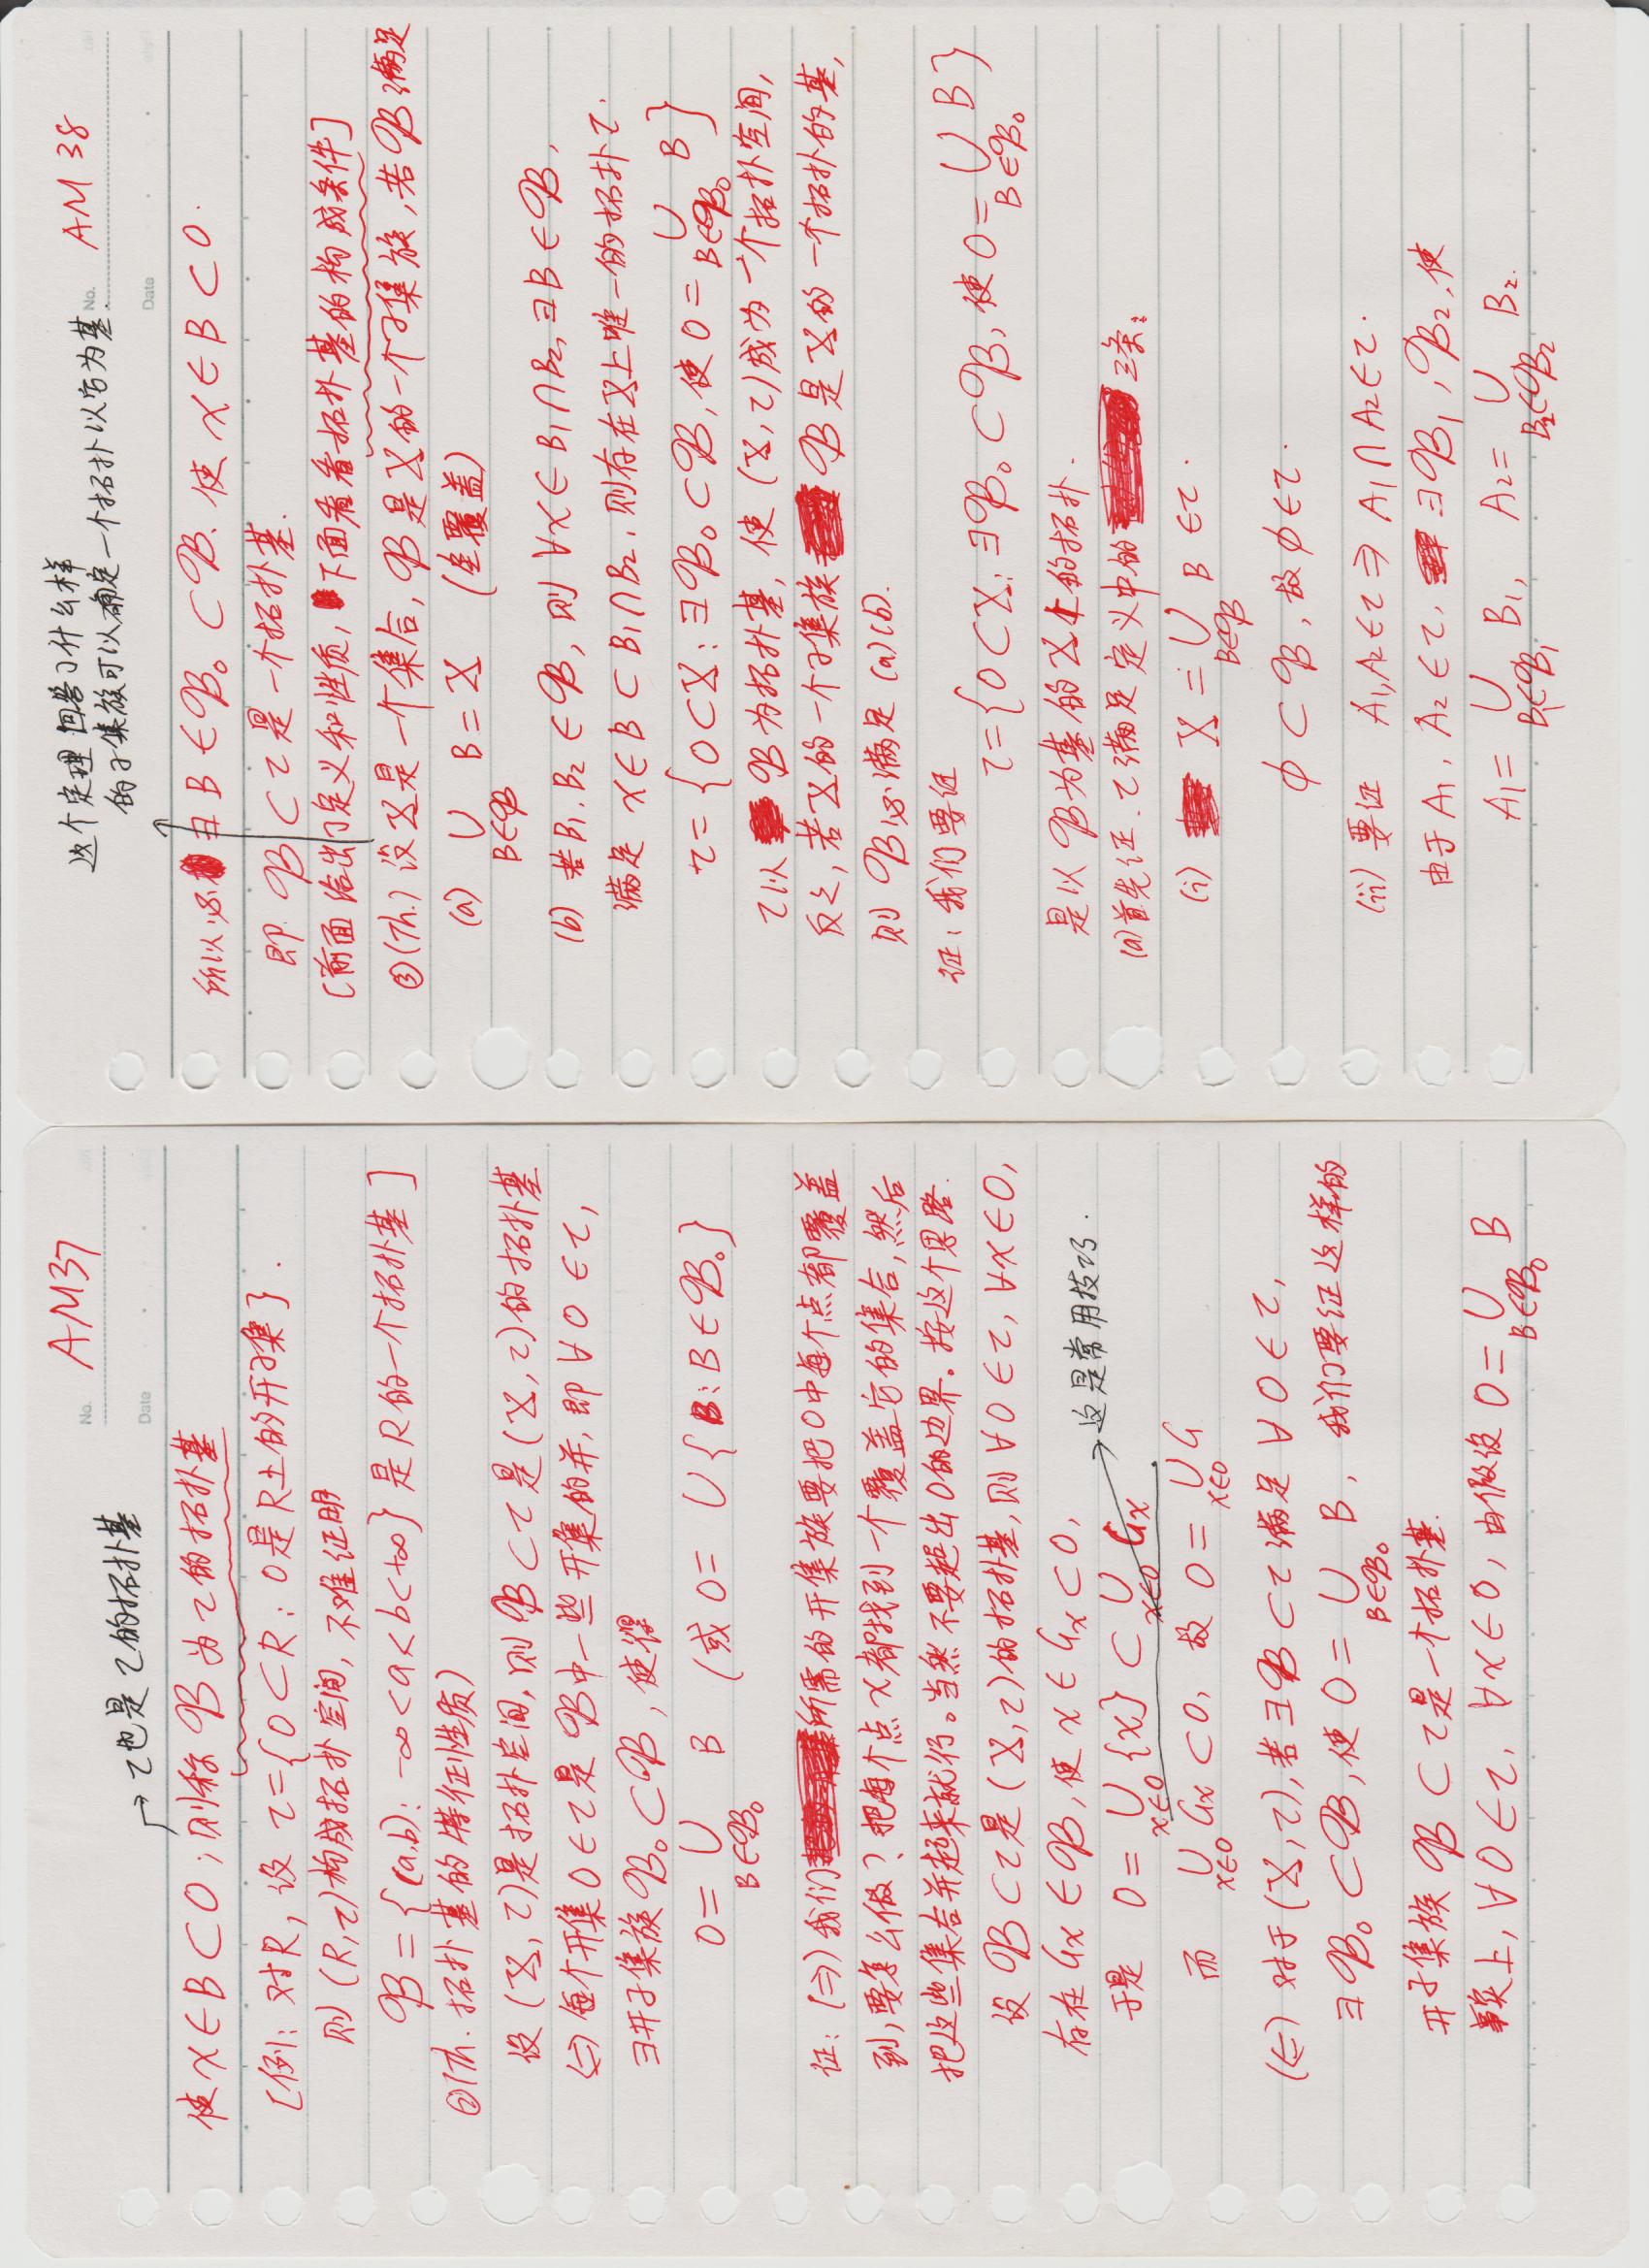 No. AM37
→ τ也是τ的拓扑基
Date
使 x∈B⊂O；则称 ℬ 为τ的拓扑基
[例：对R，设 τ={O⊂R：O是R上的开子集}.
则 (R,τ)构成拓扑空间，不难证明
ℬ={(a,b)：-∞<a<b<+∞}是R的一个拓扑基]
②(Th. 拓扑基的特征性质)
设(X,τ)是拓扑空间，则ℬ⊂τ是(X,τ)的拓扑基
⇔每个开集O∈τ是ℬ中一些开集的并，即∀O∈τ，
∃开子集族ℬ₀⊂ℬ，使得
O=∪ B (或O= ∪{B：B∈ℬ₀}
B∈ℬ₀
证：(⇒)我们所需的开集族要把O中每个点都覆盖
到，要怎么做？把每个点x都找到一个覆盖它的集合，然后
把这些集合并起来就行。当然不要超出O的边界。按这个思路.
设ℬ⊂τ是(X,τ)的拓扑基，则∀O∈τ，∀x∈O，
存在Gx∈ℬ，使x∈Gx⊂O，
→这是常用技巧.
于是 O=∪{x}⊂∪Gx
x∈O x∈O
而 ∪Gx⊂O，故 O=∪G
x∈O x∈O
(⇐)对于(X,τ)，若∃ℬ⊂τ满足∀O∈τ，
∃ℬ₀⊂ℬ，使O=∪ B，我们要证这样的
B∈ℬ₀
开子集族ℬ⊂τ是一个拓扑基.
事实上，∀O∈τ，∀x∈O，由假设O=∪ B
B∈ℬ₀
这个定理回答了什么样
的子集族可以确定一个拓扑以它为基.
No. AM38
Date
所以必∃B∈ℬ₀⊂ℬ.使x∈B⊂O.
即ℬ⊂τ是一个拓扑基.
[前面给出了定义和性质，下面看看拓扑基的构成条件]
③(Th.)设X是一个集合，ℬ是X的一个子集族，若ℬ满足
(a) ∪ B=X (全覆盖)
B∈ℬ
(b) 若B₁,B₂∈ℬ，则∀x∈B₁∩B₂，∃B∈ℬ，
满足 x∈B⊂B₁∩B₂，则存在X上唯一的拓扑τ.
τ={O⊂X：∃ℬ₀⊂ℬ，使O=∪ B}
B∈ℬ₀
τ以ℬ为拓扑基，使(X,τ)成为一个拓扑空间，
反之，若X的一个子集族ℬ是X的一个拓扑的基，
则ℬ必满足(a)(b).
证：我们要证
τ={O⊂X：∃ℬ₀⊂ℬ，使O=∪ B}
B∈ℬ₀
是以ℬ为基的X上的拓扑.
(a)首先证.τ满足定义中的三条：
(i) X=∪ B∈τ.
B∈ℬ
∅⊂ℬ，故∅∈τ.
(ii) 要证 A₁,A₂∈τ⇒A₁∩A₂∈τ.
由于A₁,A₂∈τ，∃ℬ₁,ℬ₂，使
A₁=∪ B₁, A₂=∪ B₂.
B₁∈ℬ₁ B₂∈ℬ₂